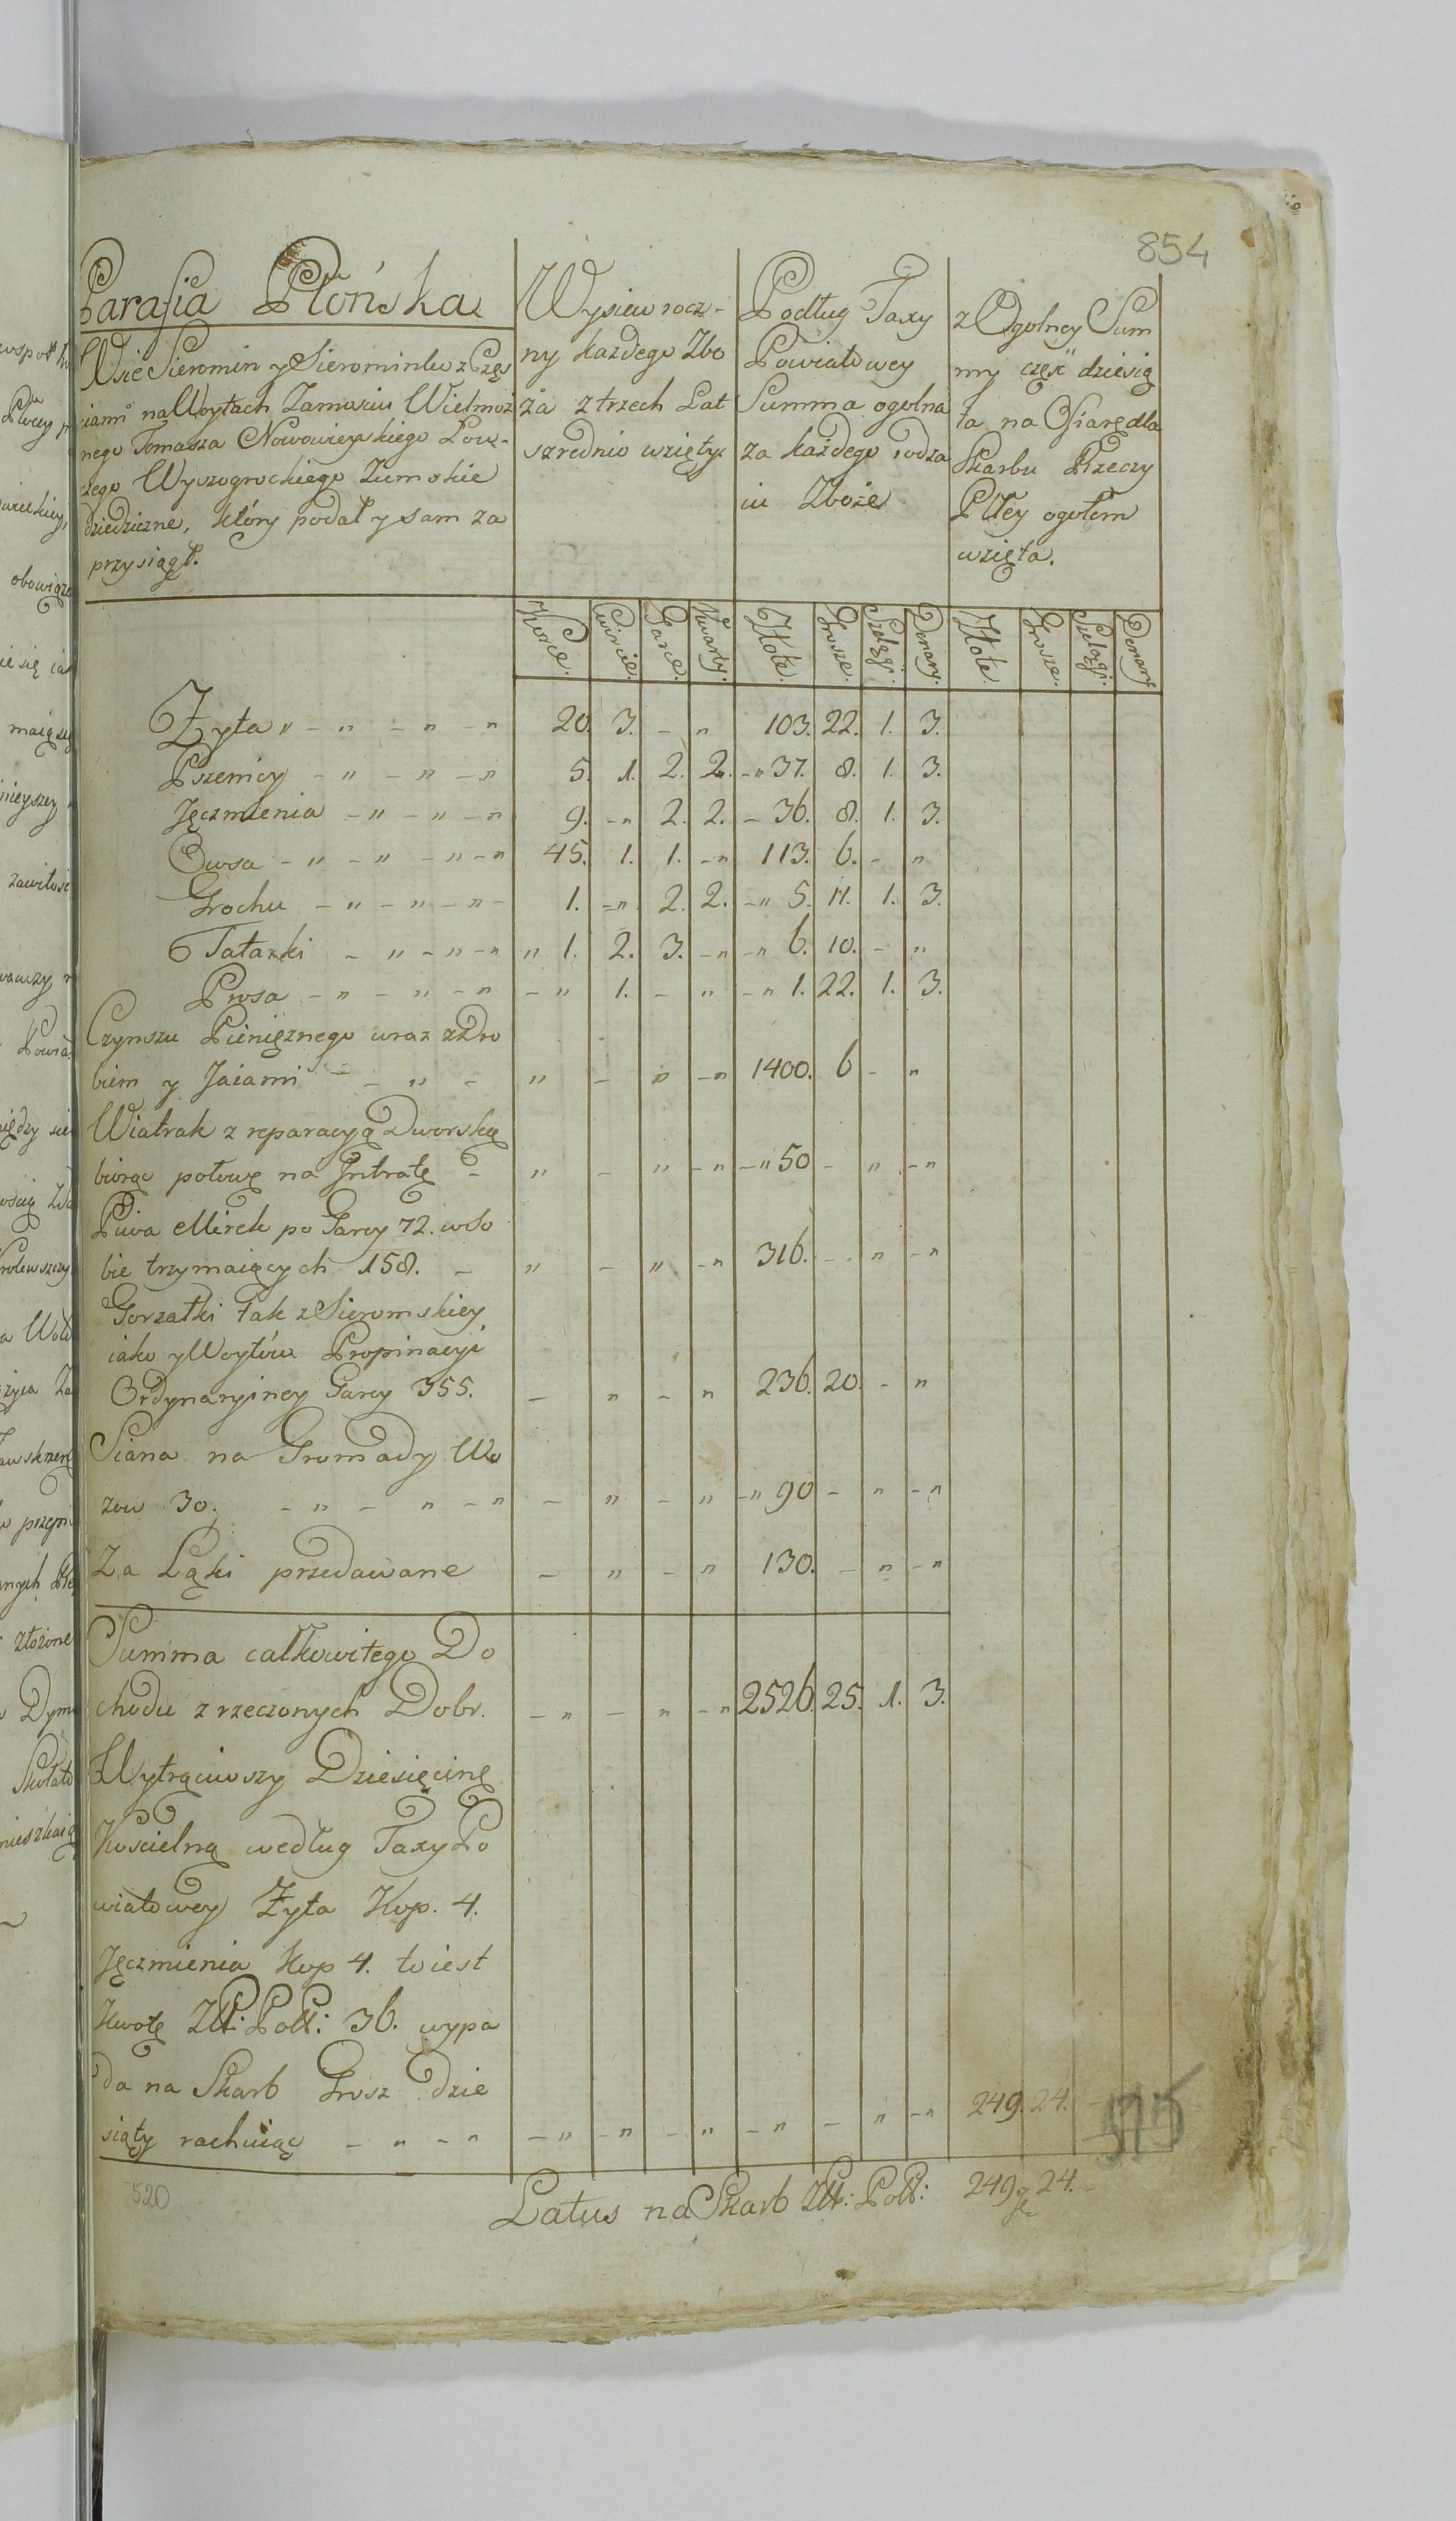 854
Parafia Płońska
Wsie Sieromin y Sierominko z Częś
ciami na Woytach Zamościu Wielmoż
nego Tomasza Nowowieyskiego Łow-
czego Wyszogrockiego Ziemskie
dziedziczne, który podał y sam za
przysiągł.
Wysiew rocz-
ny każdego Zbo
ża z trzech Lat
szrednio wzięty
Podług Taxy
Powiatowey
Summa ogolna
za każdego rodza
iu Zboże
z Ogolney Sum
my część dziesią
ta na Ofiarę dla
Skarbu Rzeczy
Pltey ogołem
wzięta.
Korce. Cwiercie. Garce. Kwarty. Złote. Grosze. Szelągi. Denary. Złote. Grosze. Szelągi. Denary
Żyta " - " - " - " 20. 3. - " 103. 22. 1. 3.
Pszenicy - " - " - " 5. 1. 2. 2. - " 37. 8. 1. 3.
Jęczmienia - " - " - " 9. - " 2. 2. - 36. 8. 1. 3.
Owsa - " - " - " - " 45. 1. 1. - " 113. 6. - "
Grochu - " - " - " - 1. - " 2. 2. - " 5. 11. 1. 3.
Tatarki - " - " - " " 1. 2. 3. - " - " 6. 10. - "
Prosa - " - " - " - " 1. - " - " 1. 22. 1. 3.
Czynszu Pieniężnego wraz z Dro
biem y Jaiami - - " - " - " - " 1400. 6 - "
Wiatrak z reparacyą Dworską
biorąc połowę na Intratę - " - " - " - " 50 - " - "
Piwa Mirek po Garcy 72. w So
bie trzymaiących 158. - " - " - " 316. - " - "
Gorzałki tak z Sieromskiey
iako y Woytów Propinacyi
Ordynaryiney Garcy 355. - " - " 236. 20. - "
Siana na Gromady Wo
zow 30. - " - " - " - " - " - " 90 - " - "
Za Łąki przedawane - " - " 130. - " - "
Summa całkowitego Do
chodu z rzeczonych Dobr. - " - " - " 2526. 25. 1. 3.
Wytrąciwszy Dziesięcinę
Kościelną według Taxy Po
wiatowey Żyta Kop. 4.
Jęczmienia Kop 4. to iest
Kwotę Złł: Poll: 36. wypa
da na Skarb Grosz Dzie
siąty rachuiąc - " - " - " - " - " - " - " - " 249. 24. -
515
520
Latus na Skarb Złł: Poll: 249 g 24. -